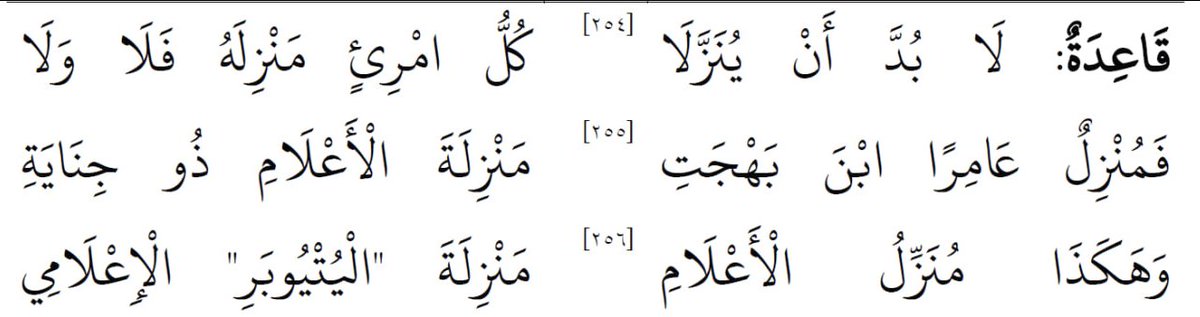 قَاعِدَةٌ: لَا بُدَّ أَنْ يُنَزَّلَا [٢٥٤] كُلُّ امْرِئٍ مَنْزِلَهُ فَلَا وَلَا
فَمُنْزِلٌ عَامِرًا ابْنَ بَهْجَتِ [٢٥٥] مَنْزِلَةَ الْأَعْلَامِ ذُو جِنَايَةِ
وَهَكَذَا مُنَزِّلُ الْأَعْلَامِ [٢٥٦] مَنْزِلَةَ "الْيُتْيُوبَرِ" الْإِعْلَامِي